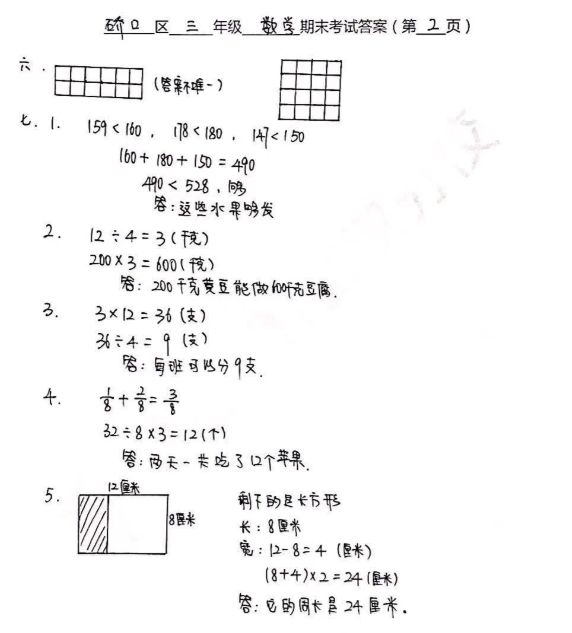 硚口区三年级数学期末考试答案(第2页)
六.
(答案不唯一)
七.1. 159<160, 178<180, 147<150
160+180+150=490
490<528,够
答:这些水果够发
2. 12÷4=3(千克)
200×3=600(千克)
答:200千克黄豆能做600千克豆腐.
3. 3×12=36(支)
36÷4=9(支)
答:每班可以分9支.
4. 1/8+2/8=3/8
32÷8×3=12(个)
答:两天一共吃了12个苹果.
5.
12厘米
8厘米
剩下的是长方形
长:8厘米
宽:12-8=4(厘米)
(8+4)×2=24(厘米)
答:它的周长是24厘米.